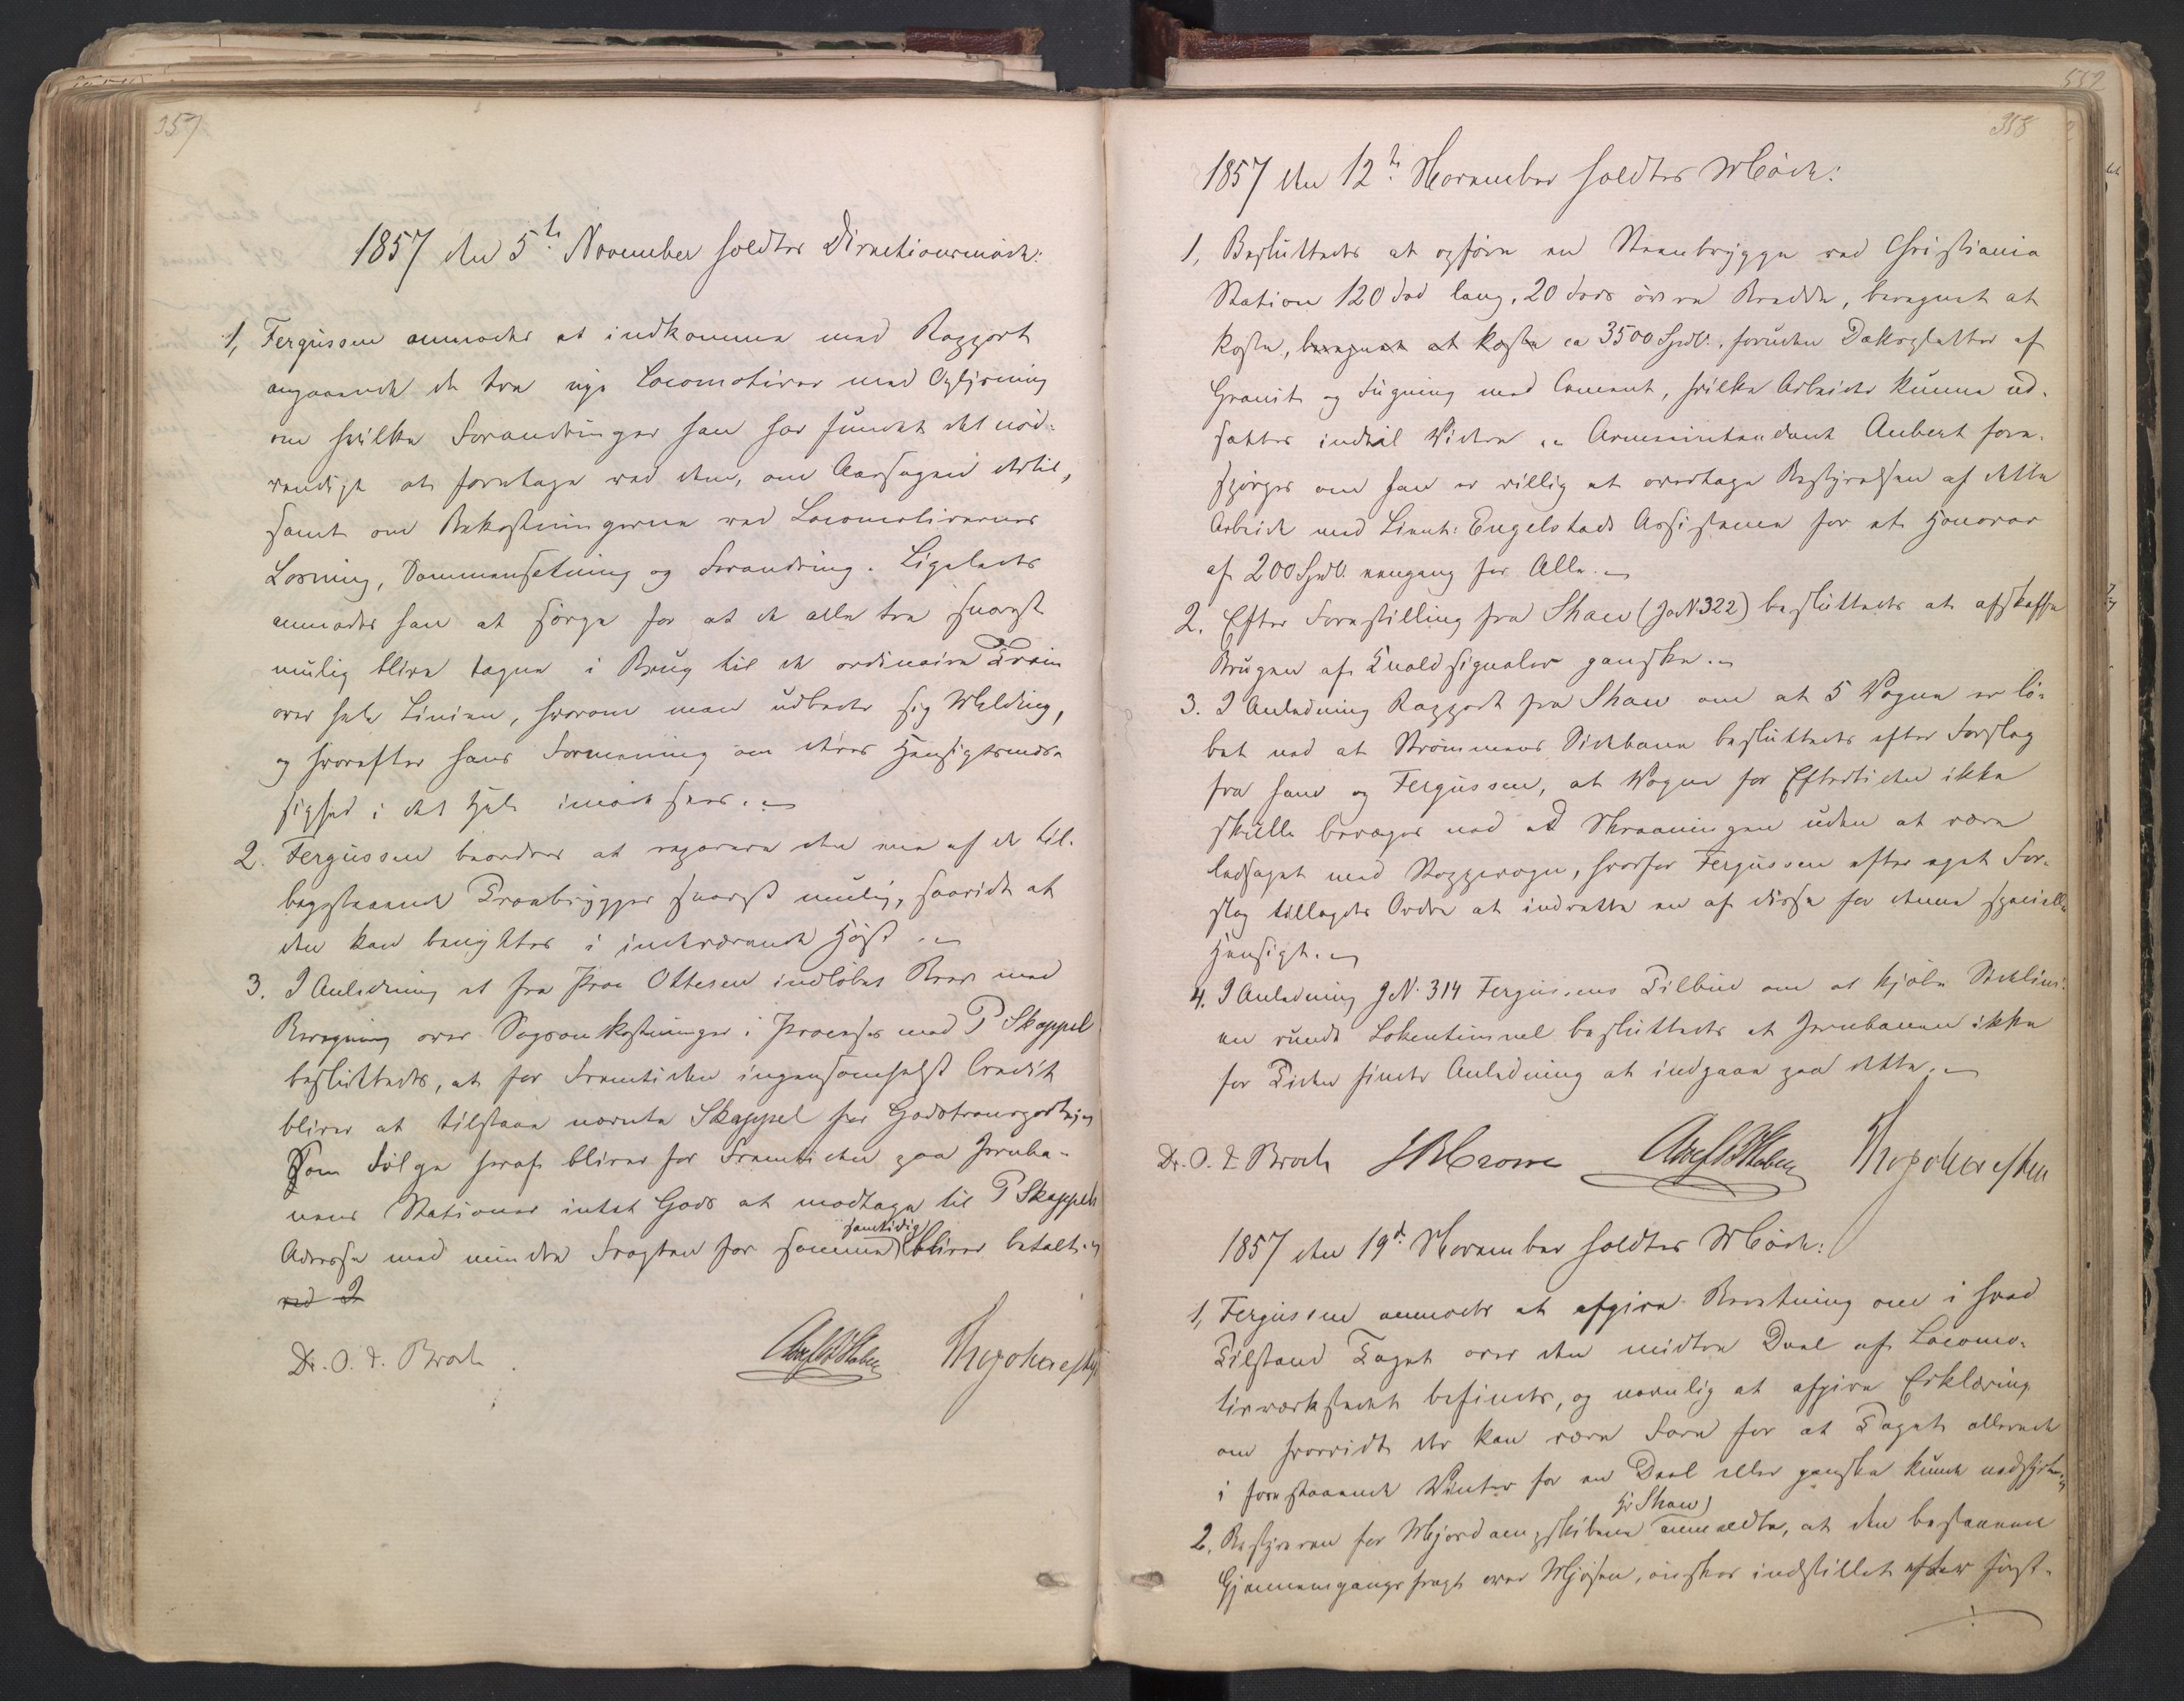 357
1857 den 5te November holdtes Directionsmöde:
1, Fergusson anmodes at indkomme med Rapport
angaaende de tre nye Locomotiver med Oplysning
om hvilke Forandringer han har fundet det nöd-
vendigt at foretage ved dem, om Aarsagen dertil,
samt om Bekostningerne ved Locomotivernes
Losning, Sammensætning og Forandring. Ligeledes
anmodes han at sörge for at de alle tre snarest
mulig blive tagne i Brug til de ordinaire Train
over hele Linien, hvorom man udbeder sig Melding,
og hvorefter hans Formening om deres Hensigtsmæs-
sighed i det Hele imödesees.
2. Fergusson beordres at reparere den ene af de til-
bagestaaende Træbrygger snarest mulig, saavidt at
den kan benyttes i indeværende Höst.
3. I Anledning et fra Proc Ottesen indlöbet Brev med
Beregning over Sagsomkostninger i Processer med P Skappel
besluttedes, at for Fremtiden ingensomhelst Credit
bliver at tilstaae nævnte Skappel for Godstransporten,
Som Fölge heraf bliver for Fremtiden paa Jernba-
nens Stationer intet Gods at modtage til P Skappels
Adresse med mindre Fragten for samme samtidig bliver betalt.
ved 2
Dr. O. J. Broch
358
1857 den 12te November holdtes Möde:
1, Besluttedes at opföre en Steenbrygge ved Christiania
Station 120 Fod lang, 20 Fods övre Bredde, beregnet at
koste, beregnet at koste ca 3500 Spdl., foruden Dæksplatter af
Granit og Fugning med Cement, hvilke Arbeider kunne ud-
sættes indtil Videre. Armeeintendant Aubert fore-
spörges om han er villig at overtage Bestyrelsen af dette
Arbeide med Lieut: Engelstads Assistance for et Honorar
af 200 Spdl. eengang for Alle.
2. Efter Forestilling fra Shaw (J.N.322) besluttedes at afskaffe
Brugen af Knaldsignaler ganske.
3. I Anledning Rapport fra Shaw om at 5 Vogne er lö-
bet ned at Strömmens Sidebane besluttedes efter Forslag
fra ham og Fergusson, at Vogne for Eftertiden ikke
skulle bevæges ned ad Skraaningen uden at være
ledsaget med Stoppevogn, hvorfor Fergusson efter eget For-
slag tillagdes Ordre at indrette en af disse for denne specielle
Hensigt.
4. I Anledning J.N. 314 Fergussons Tilbud om at kjöbe Sidelini-
en rundt Lokentunnel besluttedes at Jernbanen ikke
for Tiden finder Anledning at indgaae paa dette.
Dr. O. J. Broch JRCrowe
1857 den 19de November holdtes Möde:
1, Fergusson anmodes at afgive Beretning om i hvad
Tilstand Taget over den midtre Deel af Locomo-
tivværkstedet befindes, og navnlig at afgive Erklæring
om hvorvidt der kan være Fare for at Taget allerede
i forestaaende Vinter for en Deel eller ganske kunde nedstyrte.
2. Bestyreren for Mjösdampskibene Hr Shaw anmeldte, at den bestaaende
Gjennemgangsfragt over Mjösen, önskes indstillet efter först-